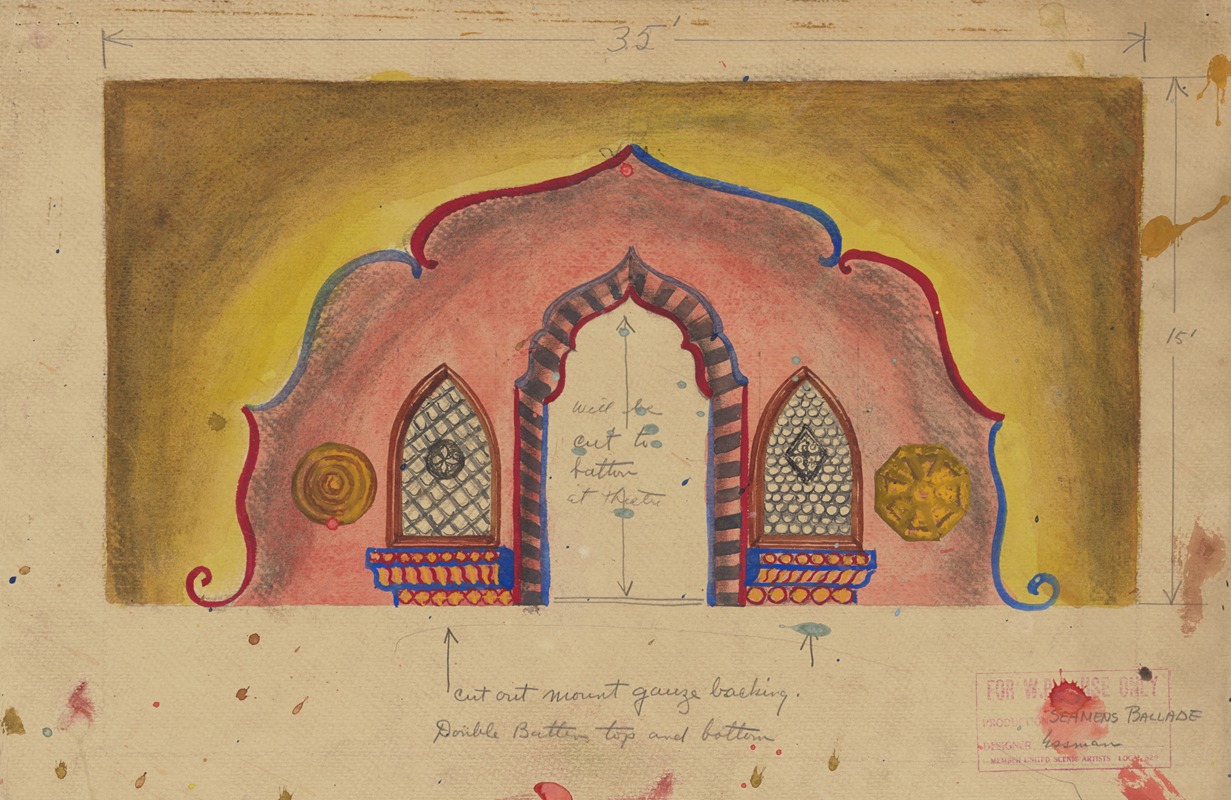 35'
15'
will be
cut to
batten
at theatre
cut out mount gauze backing.
Double Batten top and bottom
FOR W.P. USE ONLY
PRODUCTION SEAMENS BALLADE
DESIGNER Essman
MEMBER UNITED SCENIC ARTISTS LOCAL